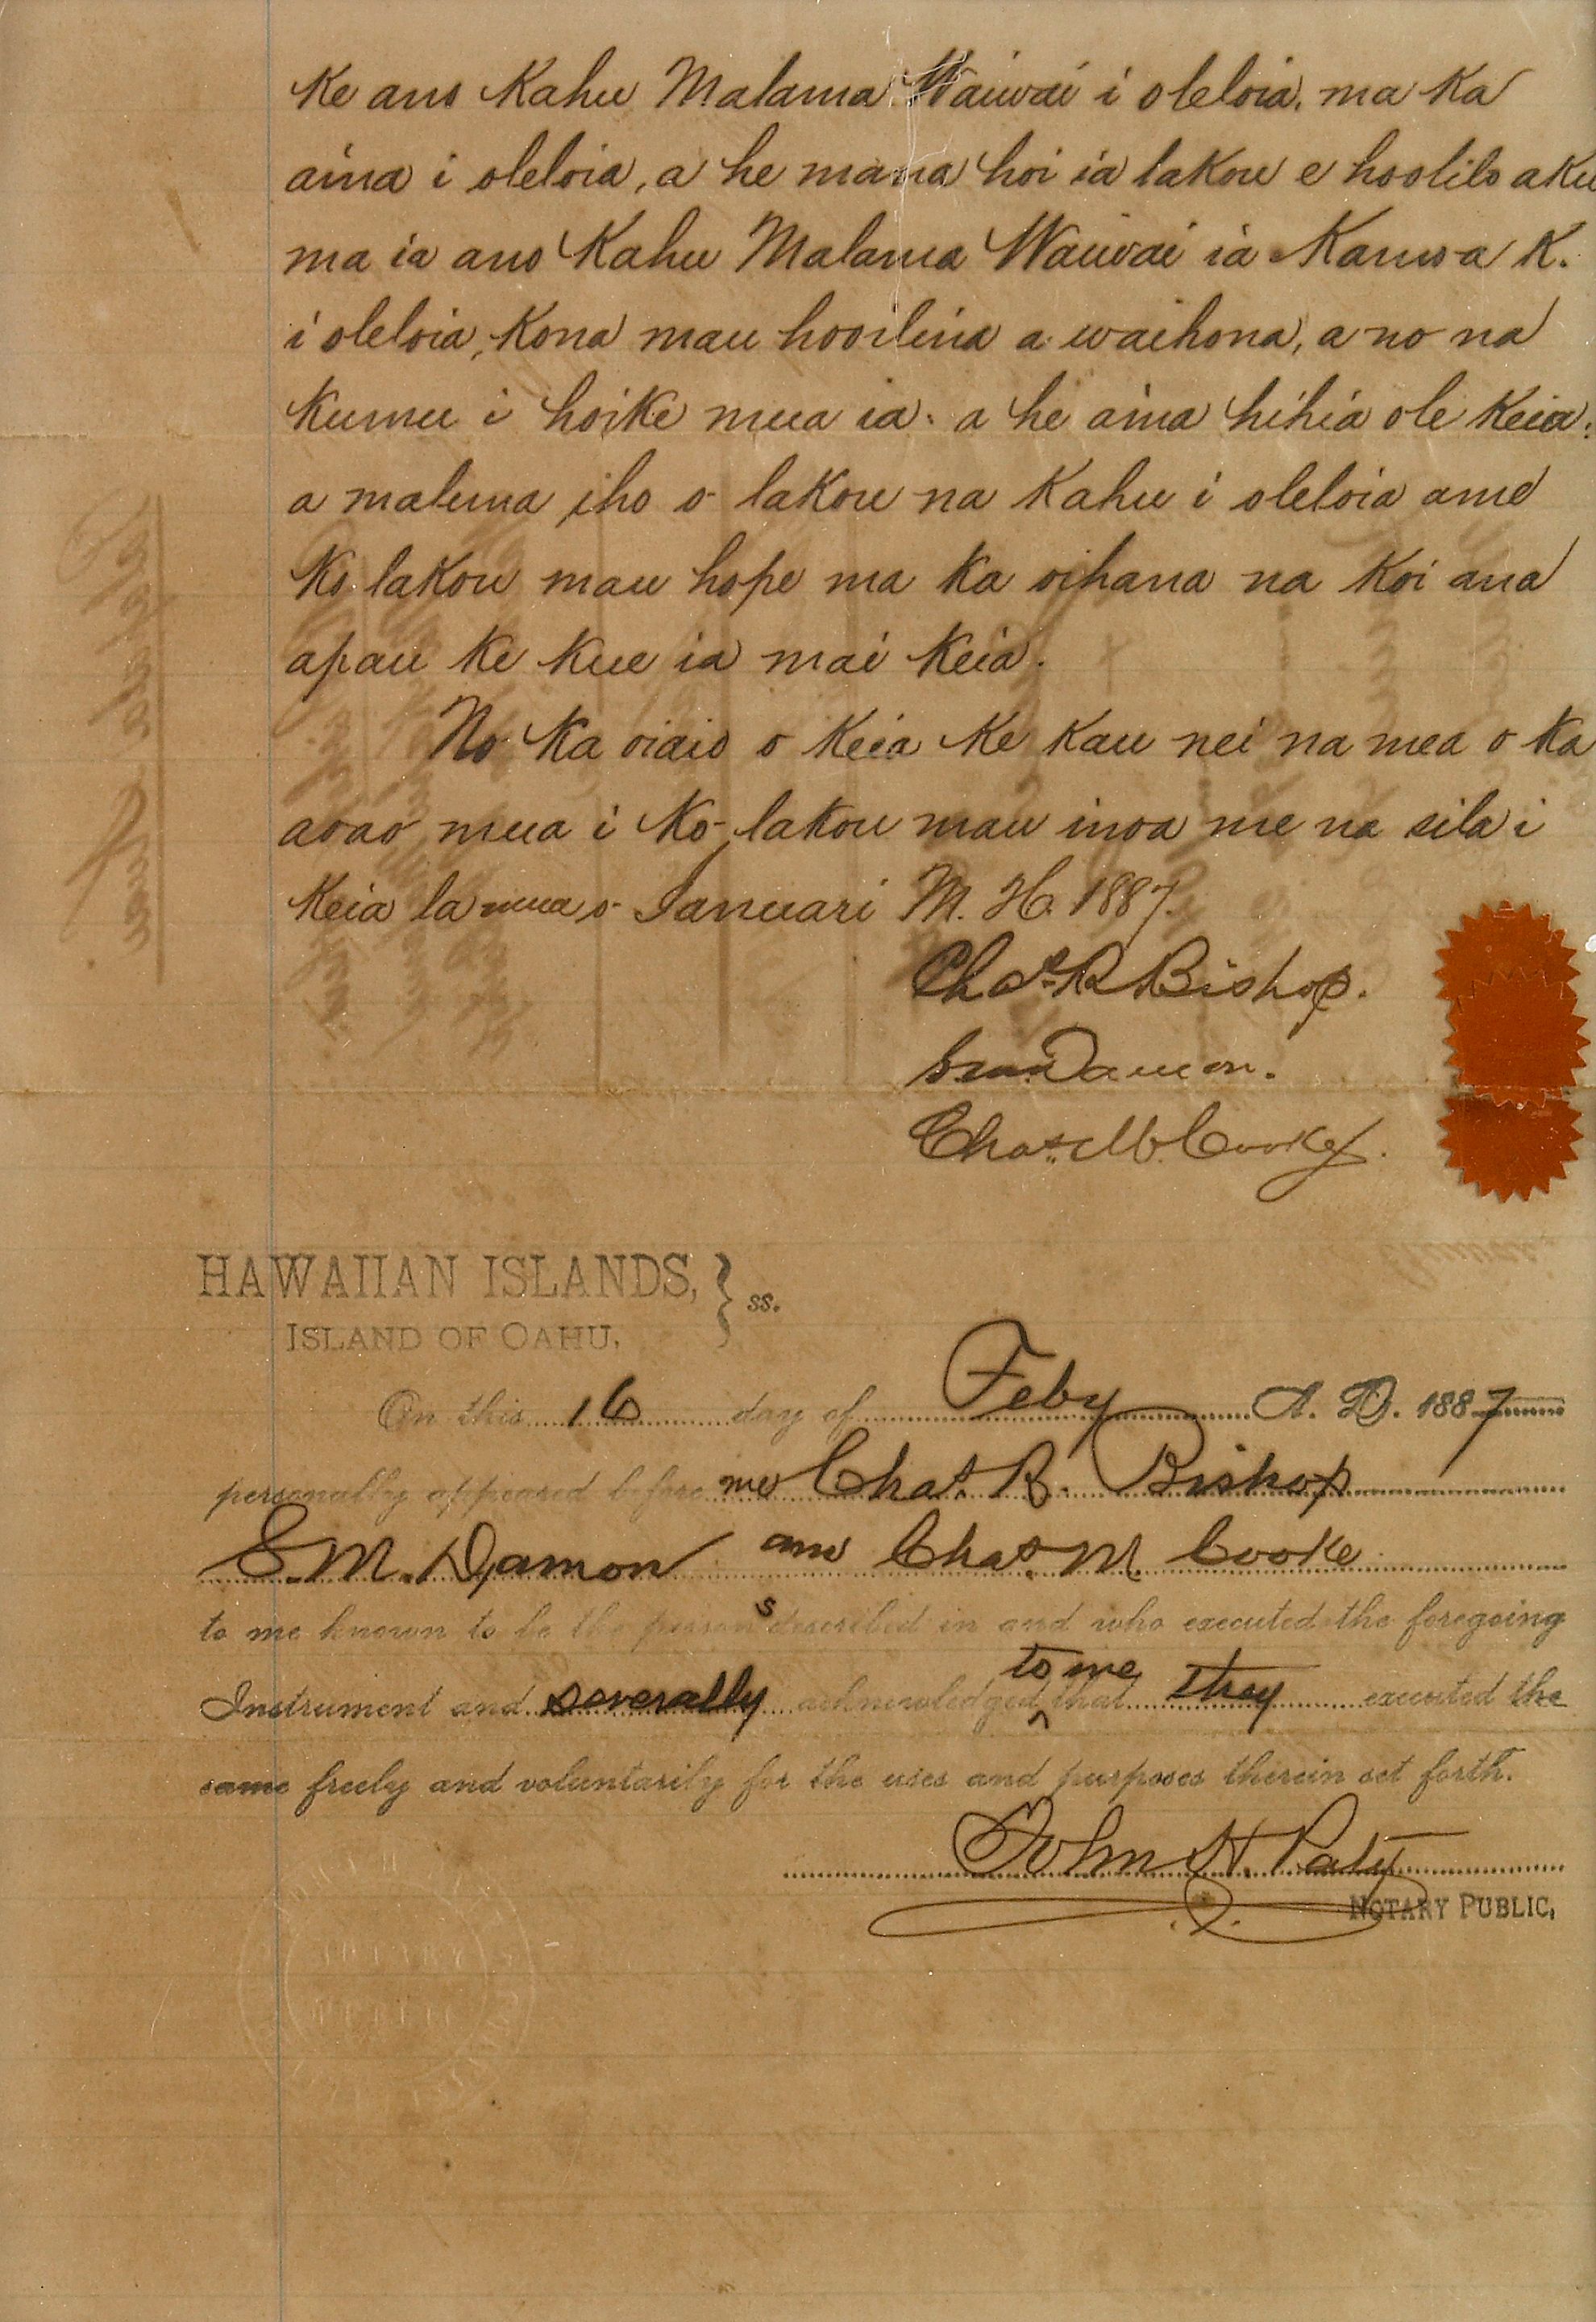 ke ano Kahu Malama Waiwai i oleloia, ma ka
aina i oleloia, a he mana hoi ia lakou e hoolilo aku
ma ia ano Kahu Malama Waiwai ia Kanoa K.
i oleloia, kona mau hooilina a waihona, a no na
kumu i hoike mua ia. a he aina hihia ole keia.
a maluna iho o lakou na Kahu i oleloia ame
ko lakou mau hope ma ka oihana na koi ana
apau ke kue ia mai keia.
No ka oiaio o keia ke kau nei na mea o ka
aoao mua i ko lakou mau inoa me na sila i
keia la mua o Ianuari M. H. 1887.
Chas R Bishop.
Damon.
Chas. M. Cooke.
HAWAIIAN ISLANDS, } ss.
ISLAND OF OAHU,
On this 16 day of Feby A. D. 1887
personally appeared before me Chas. R. Bishop
S. M. Damon and Chas. M. Cooke
to me known to be the persons described in and who executed the foregoing
Instrument and severally acknowledged to me that they executed the
same freely and voluntarily for the uses and purposes therein set forth.
John H. Paty
NOTARY PUBLIC,
NOTARY
PUBLIC